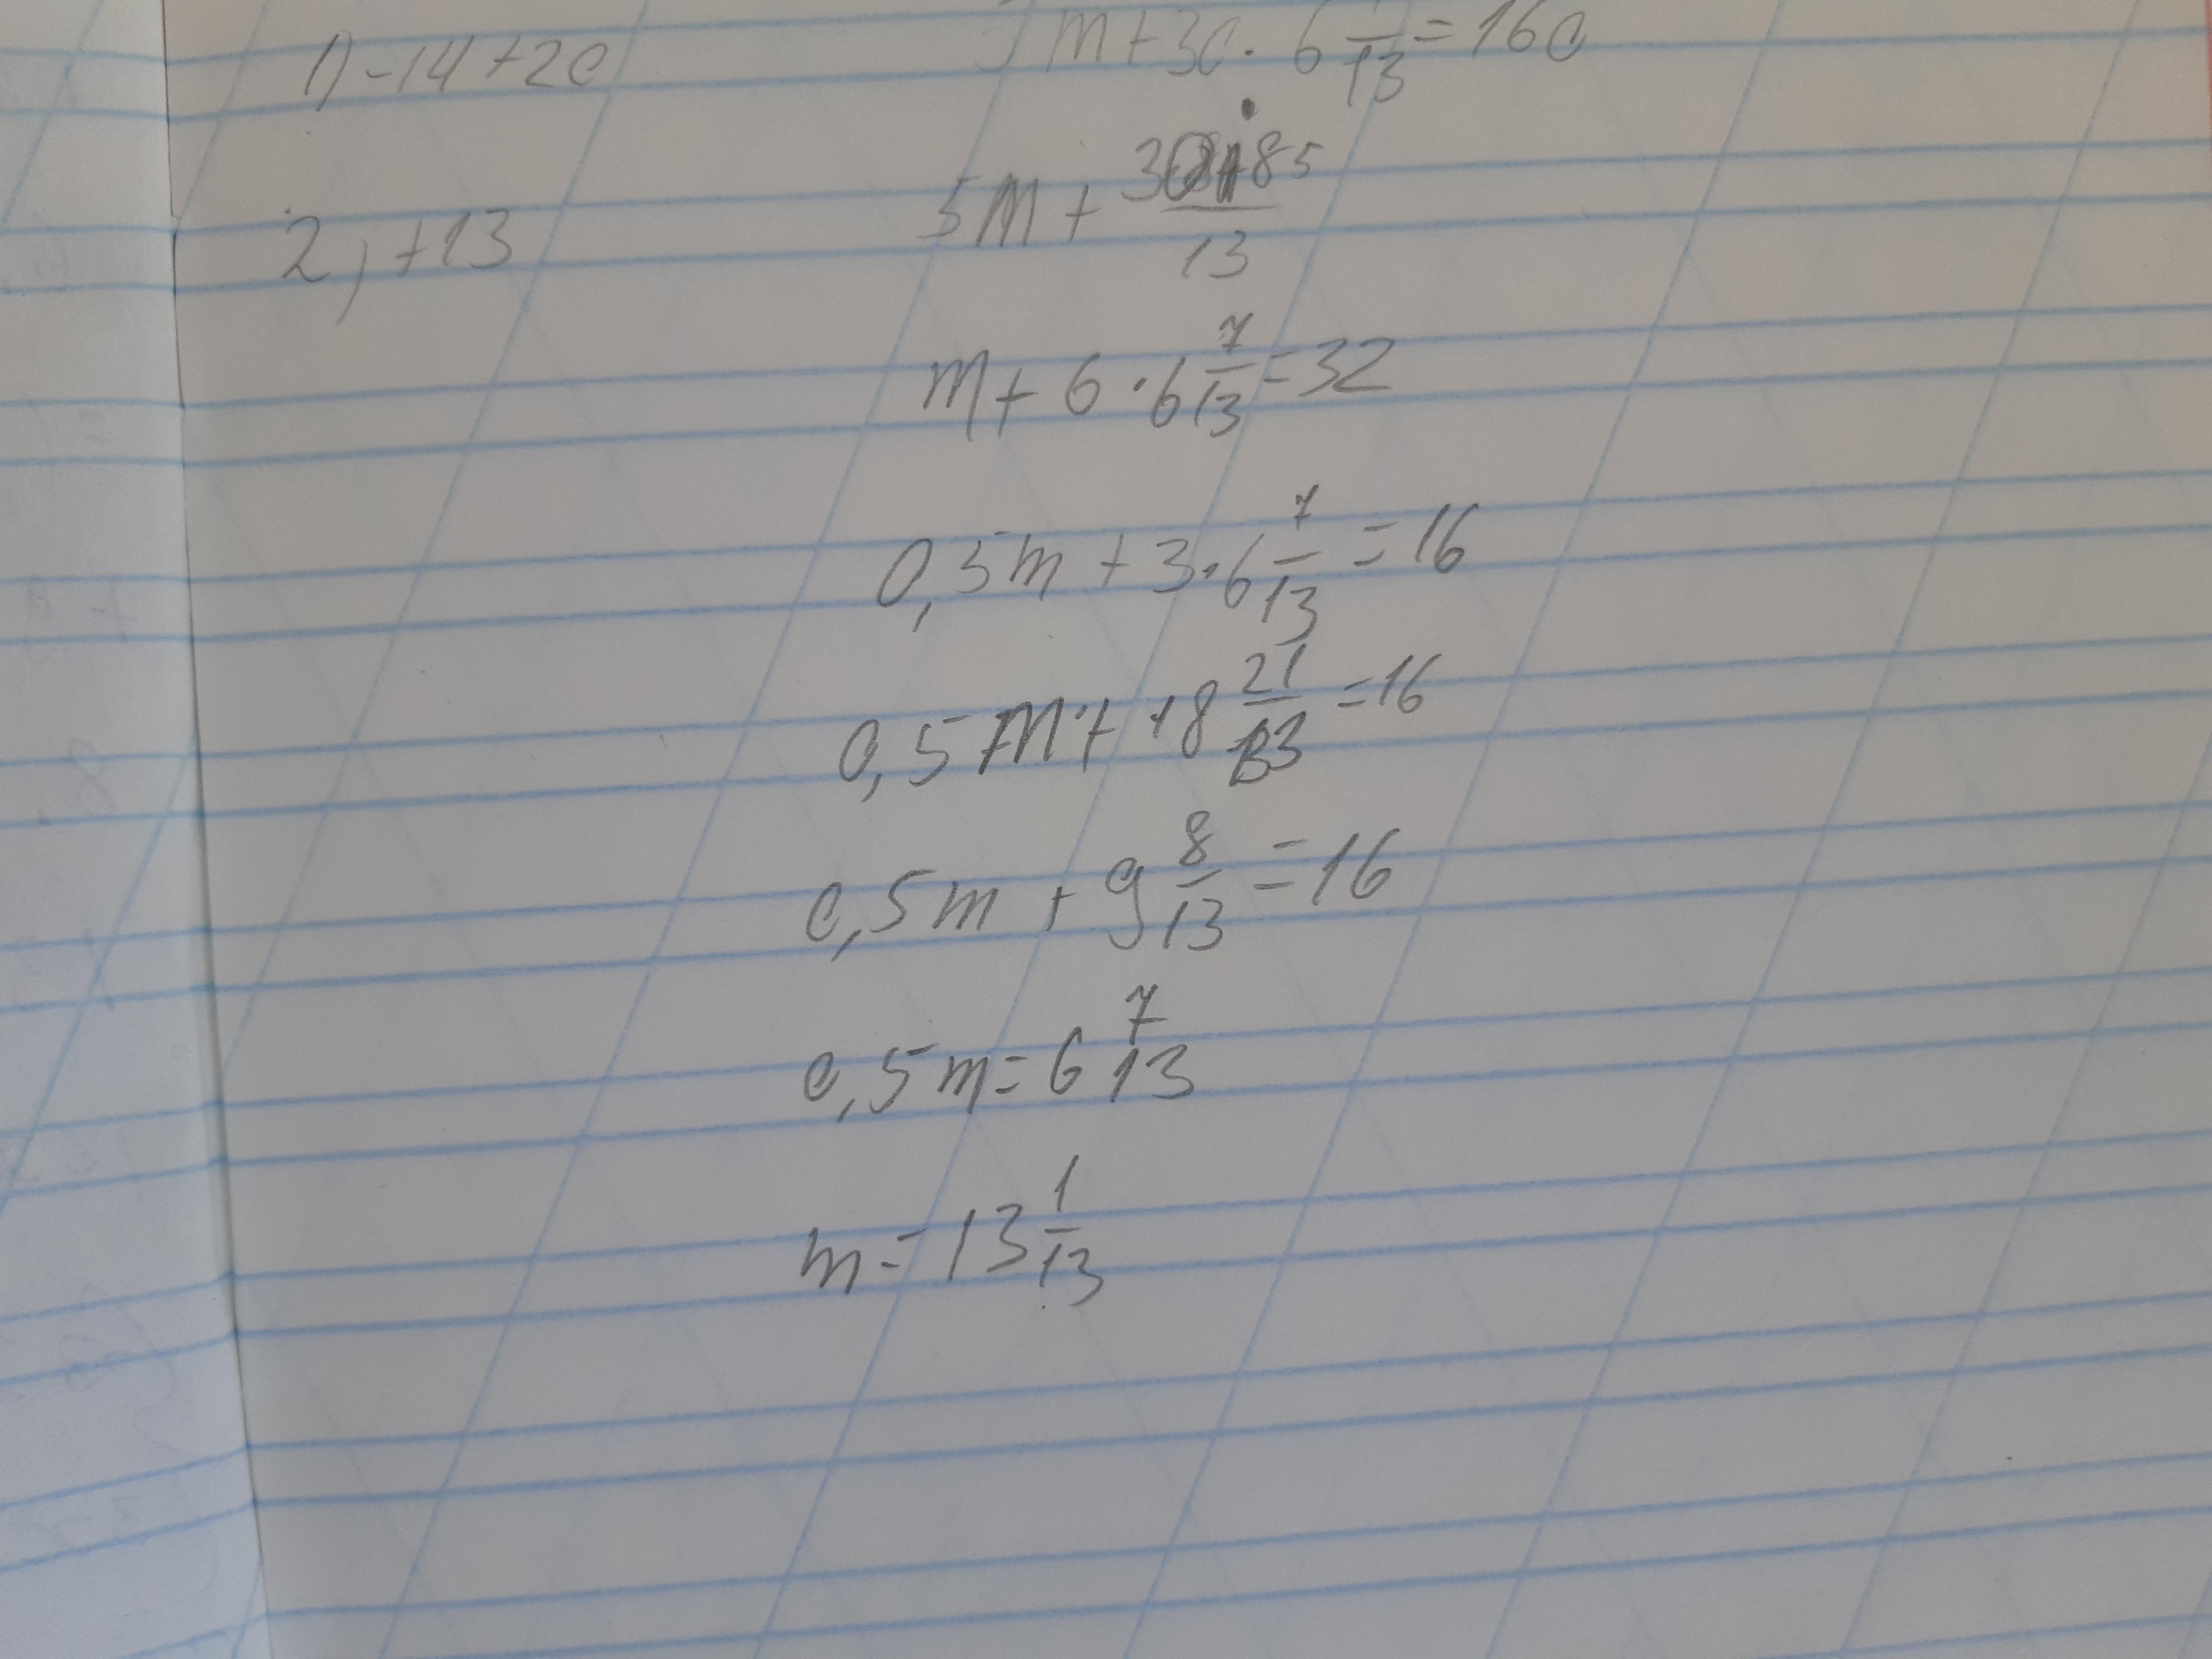 1) -14+20
5m+30·6 7/13=160
5m+ 30·85/13
2) +13
m+6·6 7/13=32
0,5m+3·6 7/13=16
0,5m+18 21/13=16
0,5m+9 8/13=16
0,5m=6 7/13
m=13 1/13